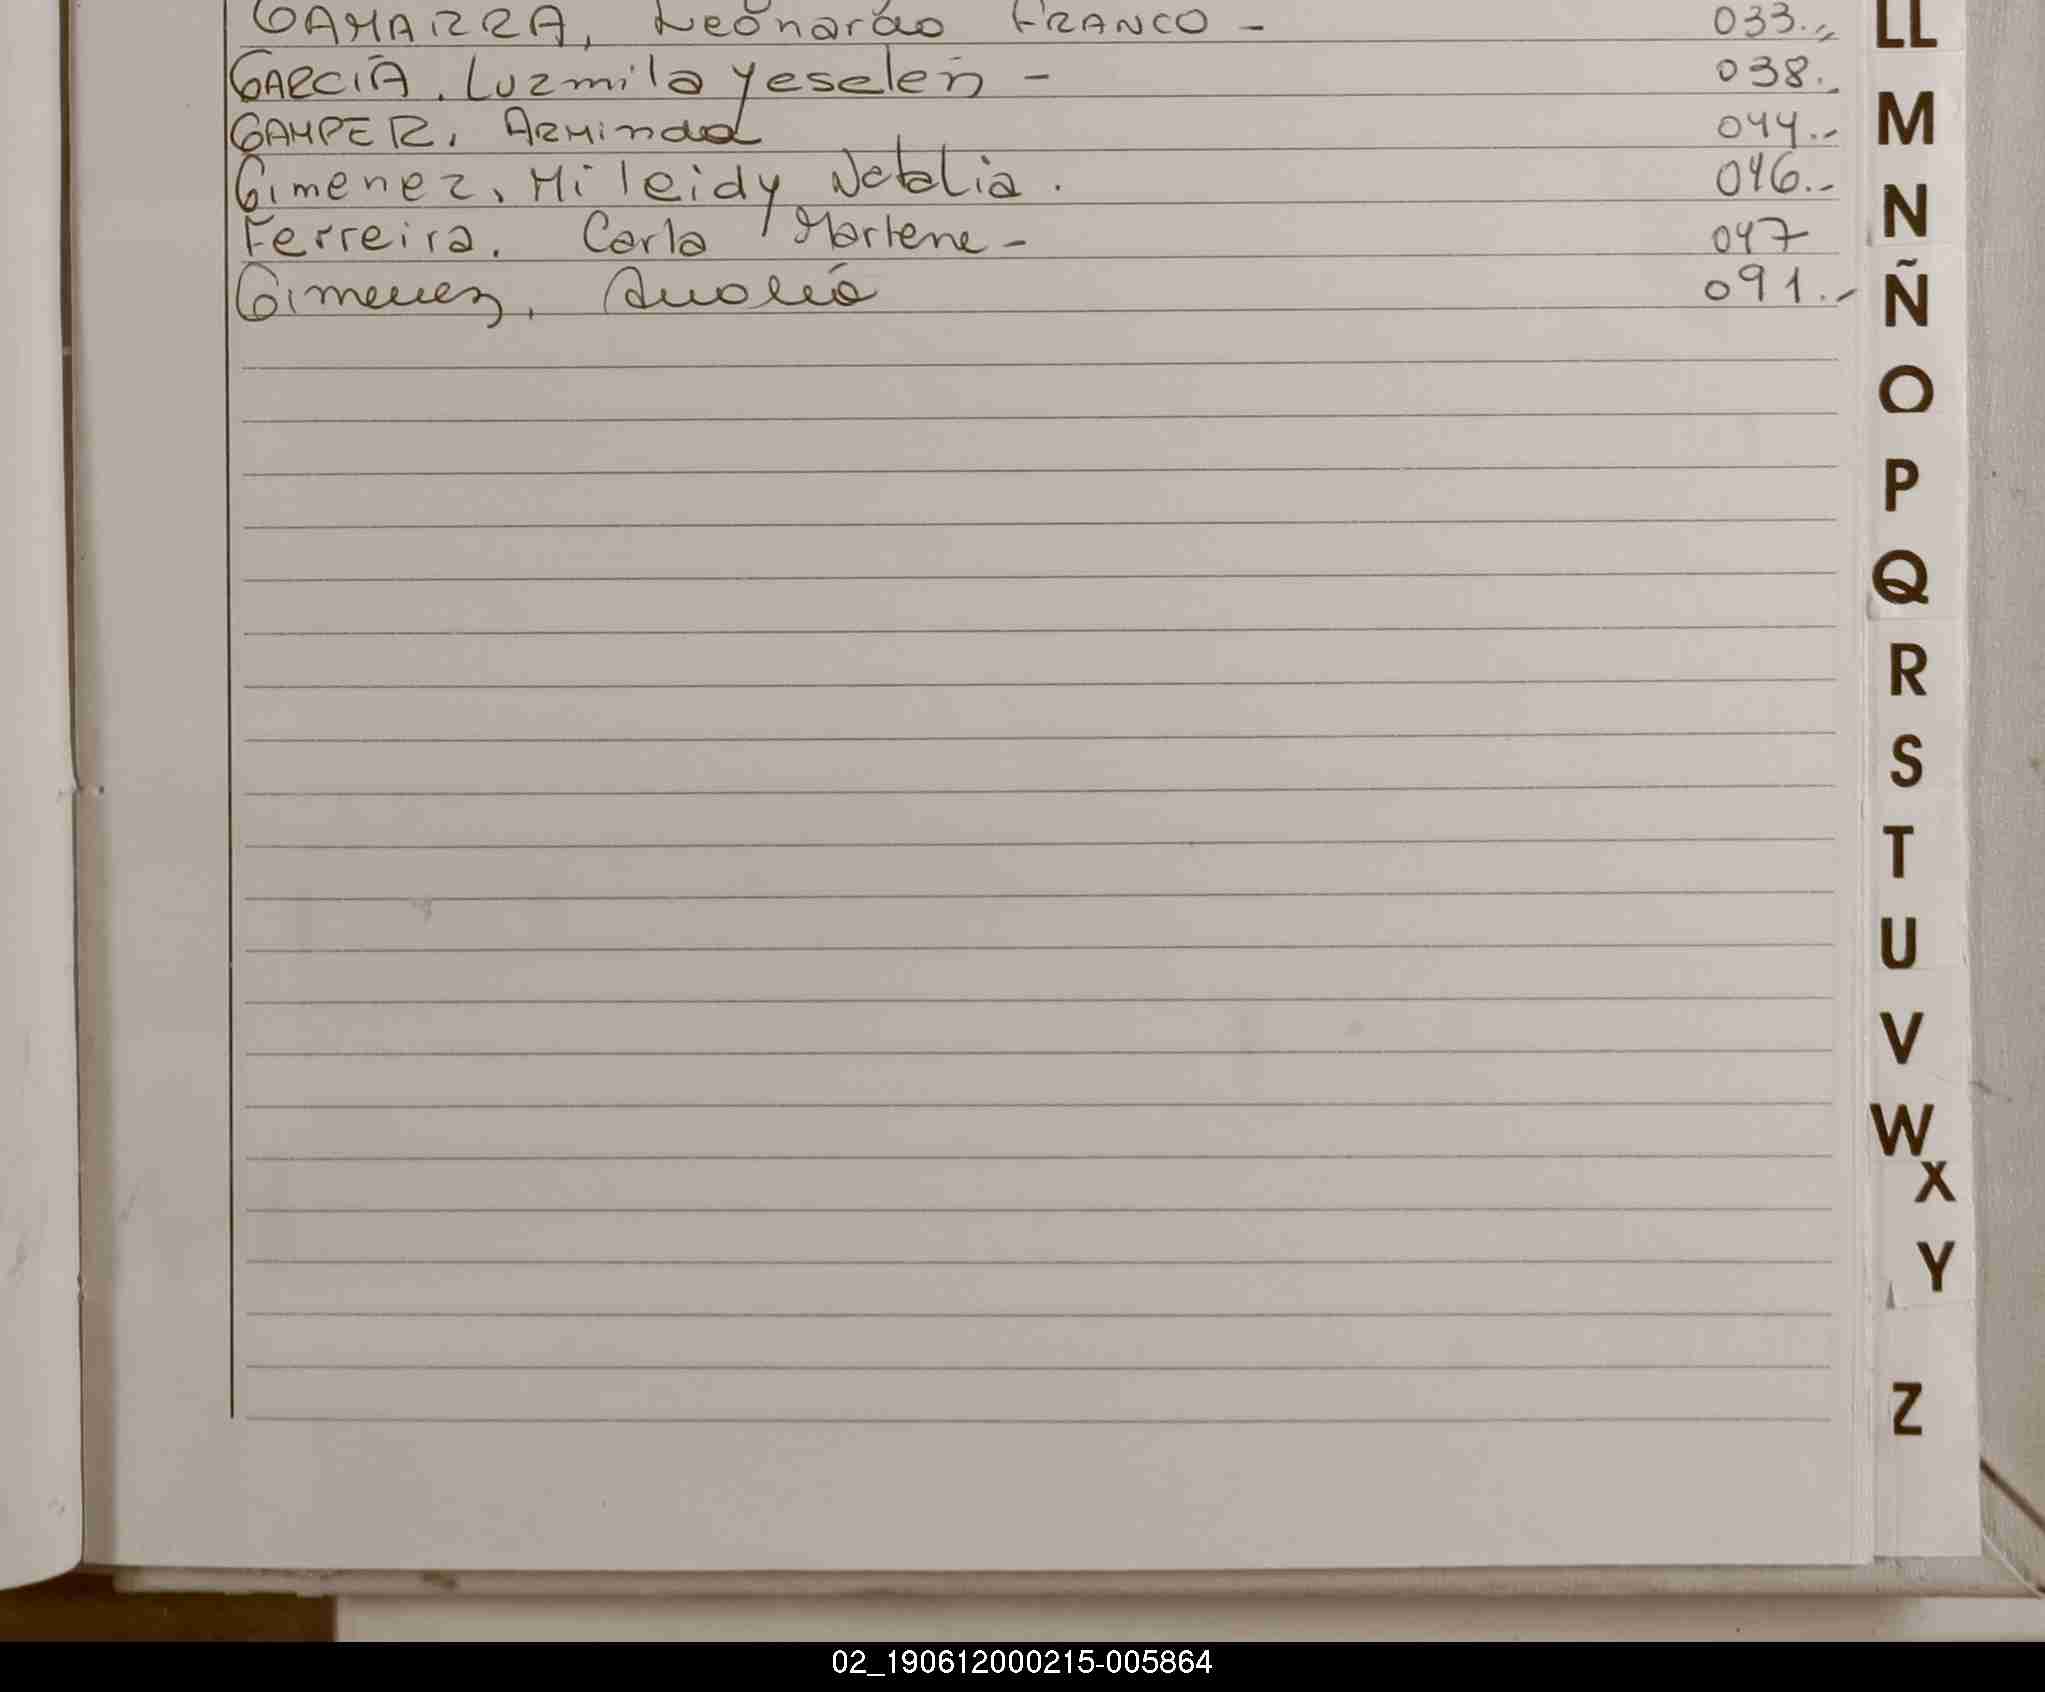 GAMARRA, Leonardo FRANCO - 033.,,
GARCIA, Luzmila Yeseleñ - 038.,
GAMPER, ARMinda 044.-
Gimenez, Mileidy Natalia. 046.-
Ferreira, Carla Marlene - 047
Gimenez, 091.-
LL
M
N
Ñ
O
P
Q
R
S
T
U
V
W
X
Y
Z
02_190612000215-005864